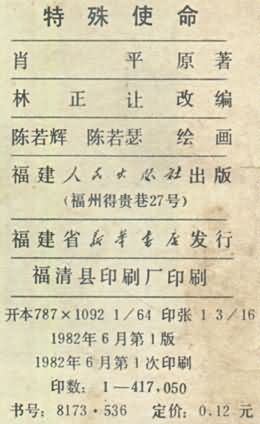 特殊使命
肖平原著
林正让改编
陈若辉 陈若瑟 绘画
福建人民出版社出版
(福州得贵巷27号)
福建省新华书店发行
福清县印刷厂印刷
开本787×1092 1/64 印张 1 3/16
1982年6月第1版
1982年6月第1次印刷
印数：1—417,050
书号：8173·536 定价：0.12元